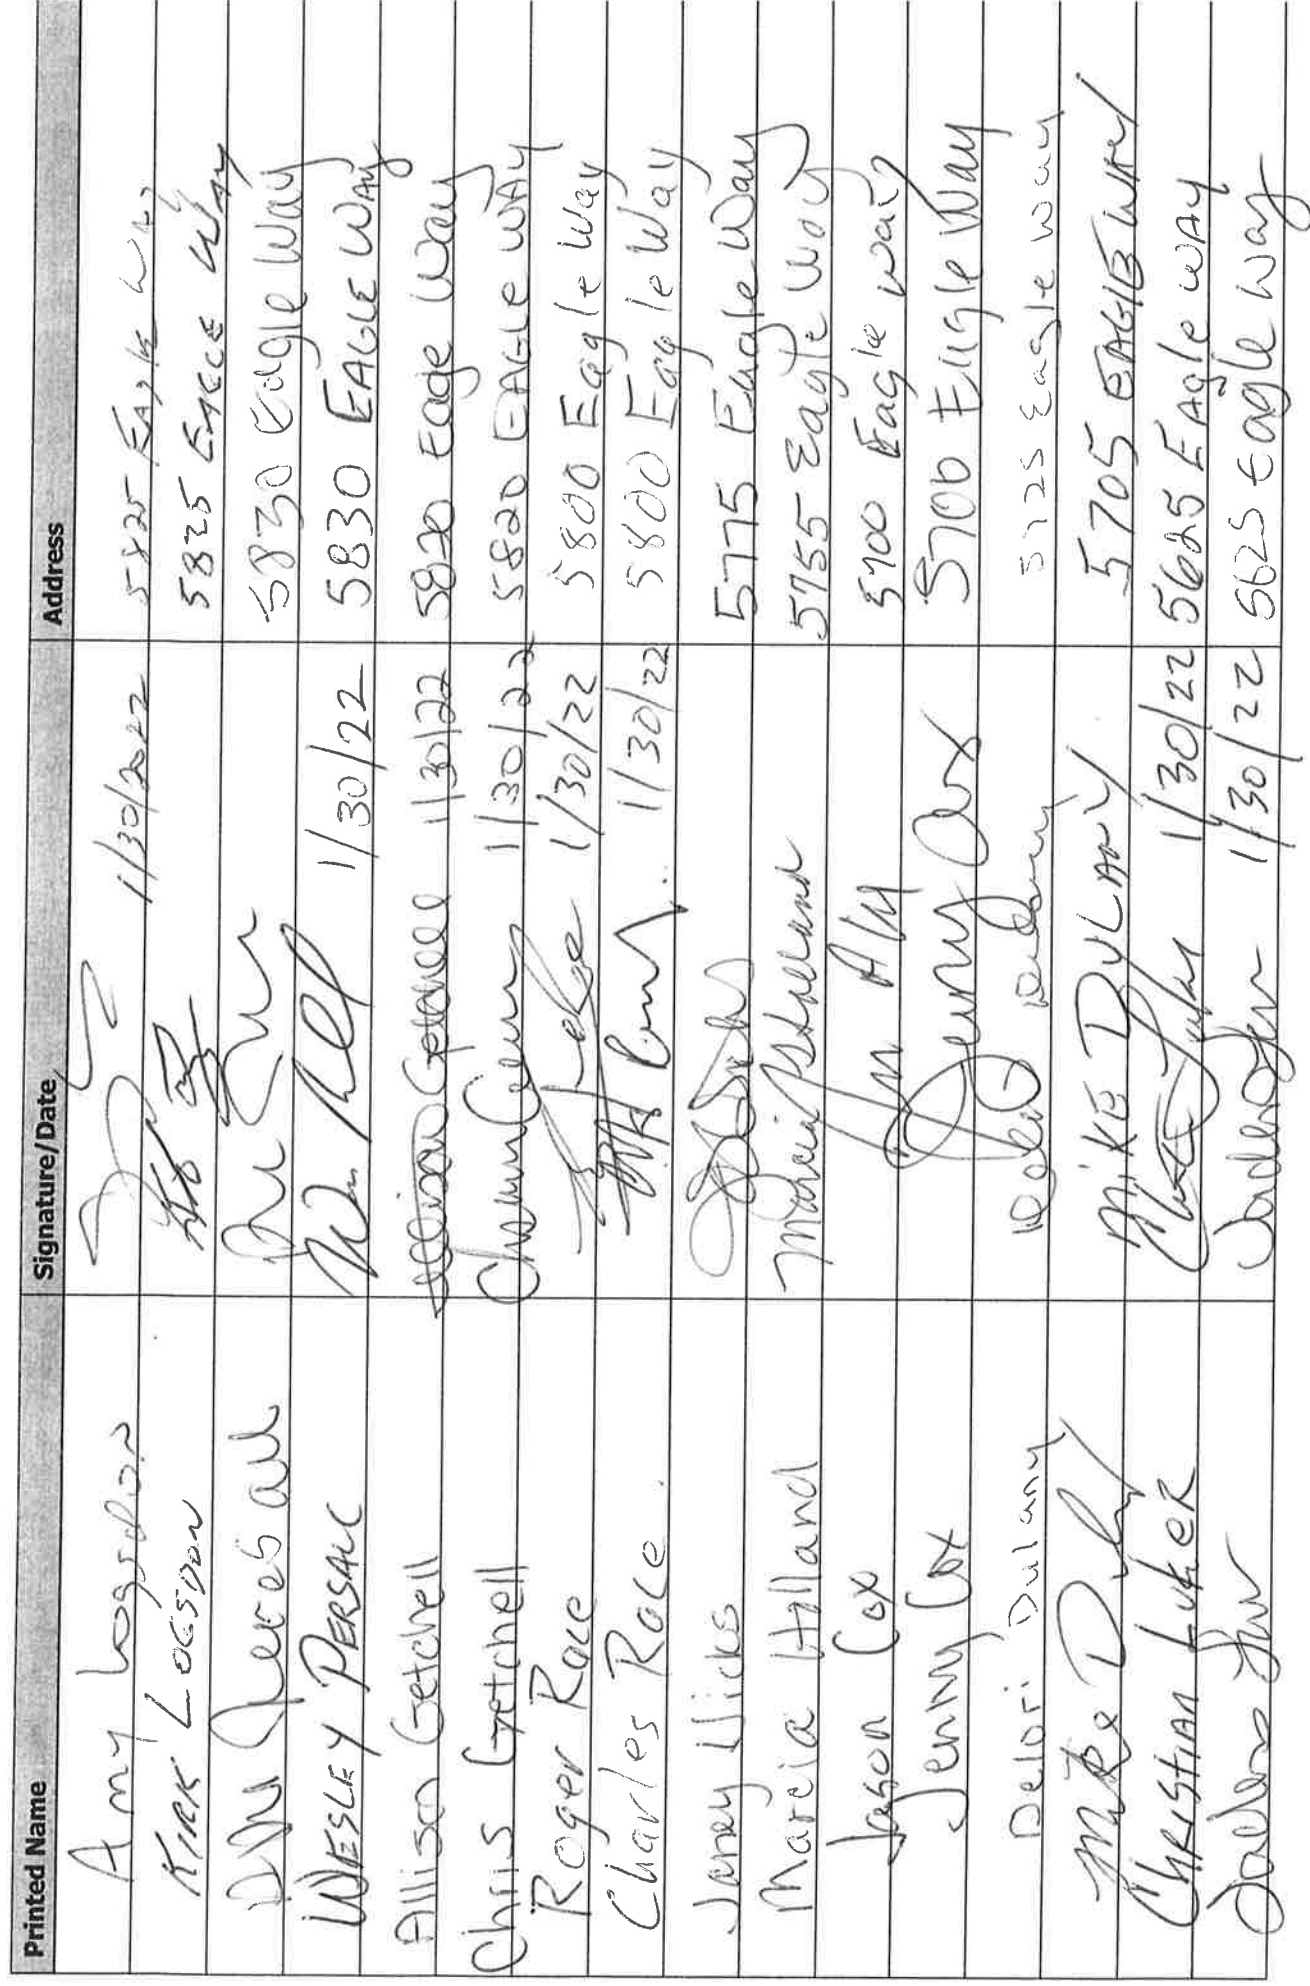 Printed Name Signature/Date Address
Amy Logsdon 1/30/2022 5825 Eagle Way
KIRK LOGSDON 5825 EAGLE WAY
5830 Eagle Way
WESLEY PERSALL 1/30/22 5830 EAGLE WAY
Allison Getchell Allison Getchell 1/30/22 5820 Eagle Way
Chris Getchell 1/30/22 5820 EAGLE WAY
Roger Race 1/30/22 5800 Eagle Way
Charles Race 1/30/22 5800 Eagle Way
Janey Hicks 5775 Eagle Way
Marcia Holland Marcia Holland 5755 Eagle Way
Jason Cox 5700 Eagle way
Jenny Cox Jenny Cox 5700 Eagle Way
Delori Dulany Delori Dulany 5725 Eagle Way
Mike MIKE DULANY 5705 EAGLE WAY
CHRISTIAN LUKER 1/30/22 5625 EAgle WAY
1/30/22 5625 Eagle Way